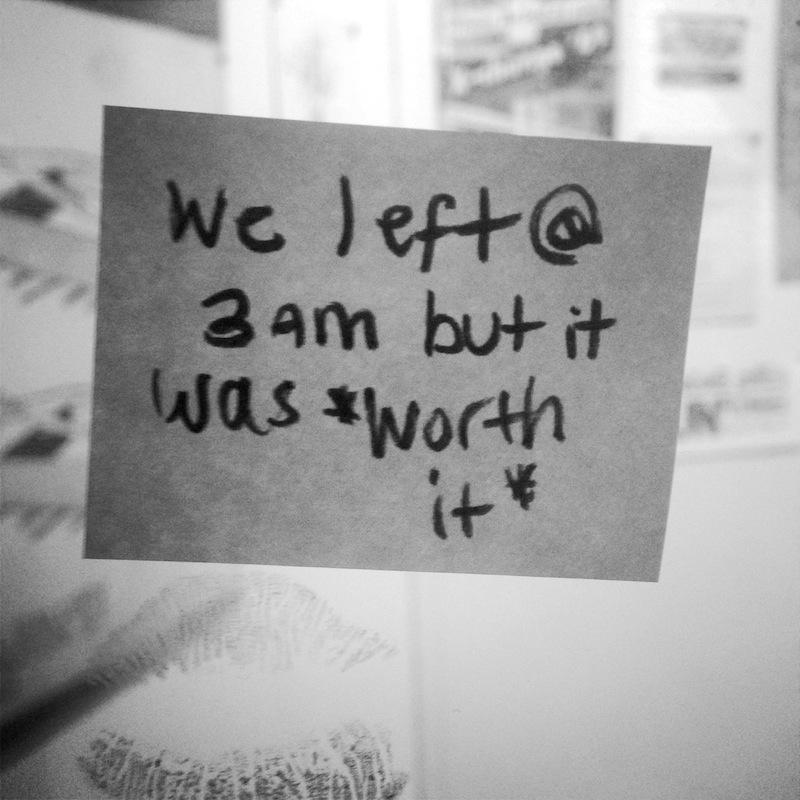 We left @
3am but it
was *worth
it*